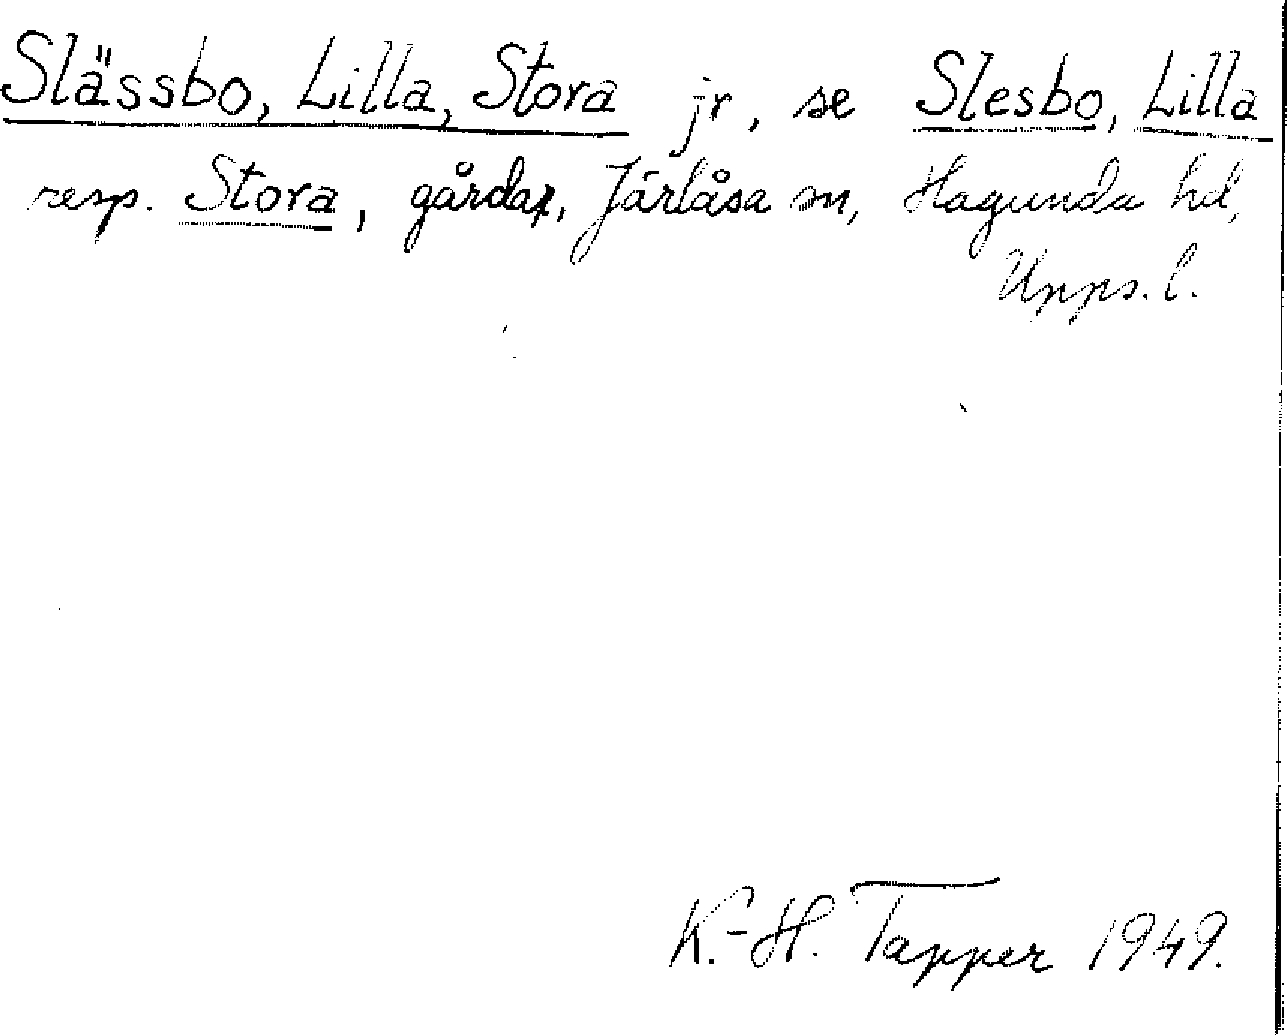 Slässbo, Lilla, Stora jr, se Slesbo, Lilla
resp. Stora, gårdar, Järlåsa sn, Hagunda hd,
Upps. l.
K.-H. Tapper 1949.